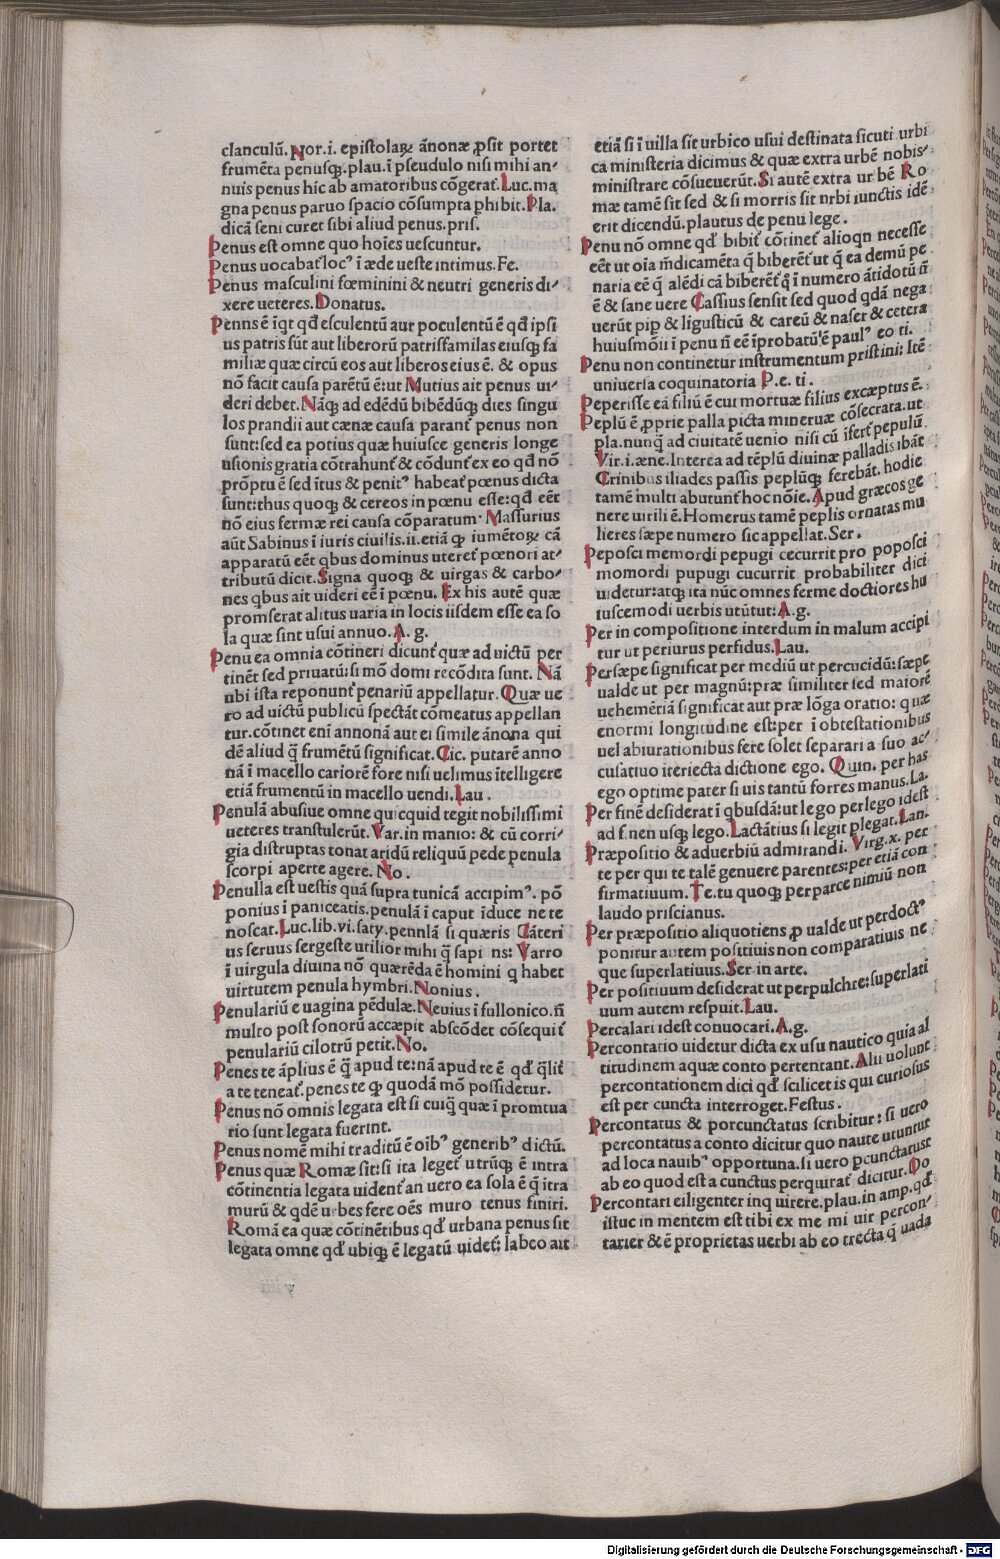 clanculū. Nor.i. epistolaꝝ ānonæ ꝓsit portet
frumēta penusqꝫ.plau.ī pseudulo nisi mihi an⸗
nuis penus hic ab amatoribus cōgerat̃. Luc.ma
gna penus paruo spacio cōsumpta ꝑhibit. Pla.
dicā seni curet sibi aliud penus.pris.
Penus est omne quo hoīes uescuntur.
Penus uocabat̃ locꝰ ī æde ueste intimus.Fe.
Penus masculini fœminini & neutri generis di⸗
xere ueteres. Donatus.
Penns ē īqt qđ esculentū aut poculentū ē qđ ipsi
us patris sūt aut liberorū patrisfamilas eiusqꝫ fa
miliæ quæ circū eos aut liberos eius ē. & opus
nō facit causa parētū ē:ut Mutius ait penus ui⸗
deri debet. Nāqꝫ ad edēdū bibēdūqꝫ dies singu
los prandii aut cænæ causa parant̃ penus non
sunt:sed ea potius quæ huiusce generis longe
usionis gratia cōtrahunt̃ & cōdunt̃ ex eo qđ nō
prōptu ē sed ītus & penitꝰ habeat̃ pœnus dicta
sunt:thus quoqꝫ & cereos in pœnu esse:qđ eēt
nō eius fermæ rei causa cōparatum. Massurius
aūt Sabinus ī iuris ciuilis.ii.etiā ꝙ iumētoꝝ cā
apparatū eēt qbus dominus uteret̃ pœnori at⸗
tributū dicit. Signa quoqꝫ & uirgas & carbo⸗
nes qbus ait uideri eē ī pœnu. Ex his autē quæ
promserat alitus uaria in locis iisdem esse ea so
la quæ sint usui annuo. A. g.
Penu ea omnia cōtineri dicunt̃ quæ ad uictū per
tinēt sed priuatū:si mō domi recōdita sunt. Nā
ubi ista reponunt̃ penariū appellatur. Quæ ue
ro ad uictū publicū spectāt cōmeatus appellan
tur.cōtinet eni annonā aut ei simile ānona qui
dē aliud q̄ frumētū significat. Cic. putarē anno
nā ī macello cariorē fore nisi uelimus ītelligere
etiā frumentū in macello uendi. Lau.
Penulā abusiue omne quicquid tegit nobilissimi
ueteres transtulerūt. Var.in manio: & cū corri⸗
gia distruptas tonat aridū reliquū pede penula
scorpi aperte agere. No.
Penulla est uestis quā supra tunicā accipimꝰ. pō
ponius ī paniceatis.penulā ī caput iduce ne te
noscat. Luc.lib.vi.saty.pennlā si quæris Cāteri
us seruus sergeste utilior mihi q̄ sapi ns: Varro
ī uirgula diuina nō quærēda ē homini q habet
uirtutem penula hymbri. Nonius.
Penulariū e uagina pēdulæ. Neuius ī fullonico.n̄
multo post sonorū accæpit abscōdet cōsequit̃
penulariū cilotrū petit. No.
Penes te āplius ē q̄ apud te:nā apud te ē qđ q̄lit̃
a te teneat̃. penes te ꝙ quodā mō possidetur.
Penus nō omnis legata est si cuiq̄ quæ ī promtua
rio sunt legata fuerint.
Penus nomē mihi traditū ē oībꝰ generibꝰ dictū.
Penus quæ Romæ sit:si ita leget̃ utrūqꝫ ē intra
cōtinentia legata uident̃ an uero ea sola ē q̄ itra
murū & qdē urbes fere oēs muro tenus finiri.
Romā ea quæ cōtinētibus qđ urbana penus sit
legata omne qđ ubiqꝫ ē legatū uidet̃: labeo ait
etiā si ī uilla sit urbico usui destinata sicuti urbi
ca ministeria dicimus & quæ extra urbē nobis⸗
ministrare cōsueuerūt. Si autē extra urbē Ro
mæ tamē sit sed & si morris sit nrbi iunctis idē
erit dicendū.plautus de penu lege.
Penu nō omne qđ bibit̃ cōtinet̃ alioqn necesse
eēt ut oīa m̄dicamēta q̄ biberēt̃ ut q̄ ea demū pe
naria eē q̄ alēdi cā biberēt̃ q̄ ī numero ātidotū n̄
ē & sane uere Cassius sensit sed quod qdā nega
uerūt pip & ligusticū & careū & naser & cetera
huiusmōii ī penu n̄ eē īprobatū'ē paulꝰ eo ti.
Penu non continetur instrumentum pristini: Itē
uniuersa coquinatoria P.e.ti.
Peperisse eā filiū ē cui mortuæ filius excæptus ē.
Peplū ē ꝓprie palla picta mineruæ cōsecrata.ut
pla.nunq̄ ad ciuitatē uenio nisi cū īfert̃ pepulū.
Vir.i.æne.Interea ad tēplū diuinæ palladis ibāt
Crinibus iliades passis peplūqꝫ ferebāt. hodie
tamē multi abutunt̃ hoc nōie. Apud græcos ge
nere uirili ē.Homerus tamē peplis ornatas mu
lieres sæpe numero sic appellat. Ser.
Peposci memordi pepugi cecurrit pro poposci
momordi pupugi cucurrit probabiliter dici
uidetur:atqꝫ ita nūc omnes ferme doctiores hu
iuscemodi uerbis utūtur: A.g.
Per in compositione interdum in malum accipi
tur ut periurus perfidus. Lau.
Persæpe significat per mediū ut percucidū:sæpe
ualde ut per magnū:præ similiter sed maiorē
uehemētiā significat aut præ lōga oratio: quæ
enormi longitudine est:per ī obtestationibus
uel abiurationibus fere solet separari a suo ac⸗
cusatiuo iteriecta dictione ego. Quin. per has
ego optime pater si uis tantū fortes manus. La.
Per finē desiderat ī qbusdā:ut lego perlego idest
ad f.nen usqꝫ lego. Lactātius si legit plegat. Lan.
Præpositio & aduerbiū admirandi. Virg.x. per
te per qui te talē genuere parentes:per etiā con
firmatiuum. Te.tu quoqꝫ per parce nimiū non
laudo priscianus.
Per præpositio aliquotiens ꝓ ualde ut perdoctꝰ
ponitur autem positiuis non comparatiuis ne
que superlatiuus. Ser in arte.
Per positiuum desiderat ut perpulchre:superlati
uum autem respuit. Lau.
Percalari idest conuocari. A.g.
Percontatio uidetur dicta ex usu nautico quia al
titudinem aquæ conto pertentant. Alii uolunt
percontationem dici qđ scilicet is qui curiosus
est per cuncta interroget. Festus.
Percontatus & porcunctatus scribitur: si uero
percontatus a conto dicitur quo naute utuntur
ad loca nauibꝰ opportuna.si uero pcunctatust
ab eo quod est a cunctus perquirat̃ dicitur. Do
Percontari eiligenter inq uirere.plau.in amp.qđ
istuc in mentem est tibi ex me mi uir percon⸗
tarier & ē proprietas uerbi ab eo trecta q̄ uada
Digitalisierung gefördert durch die Deutsche Forschungsgemeinschaft - DFG